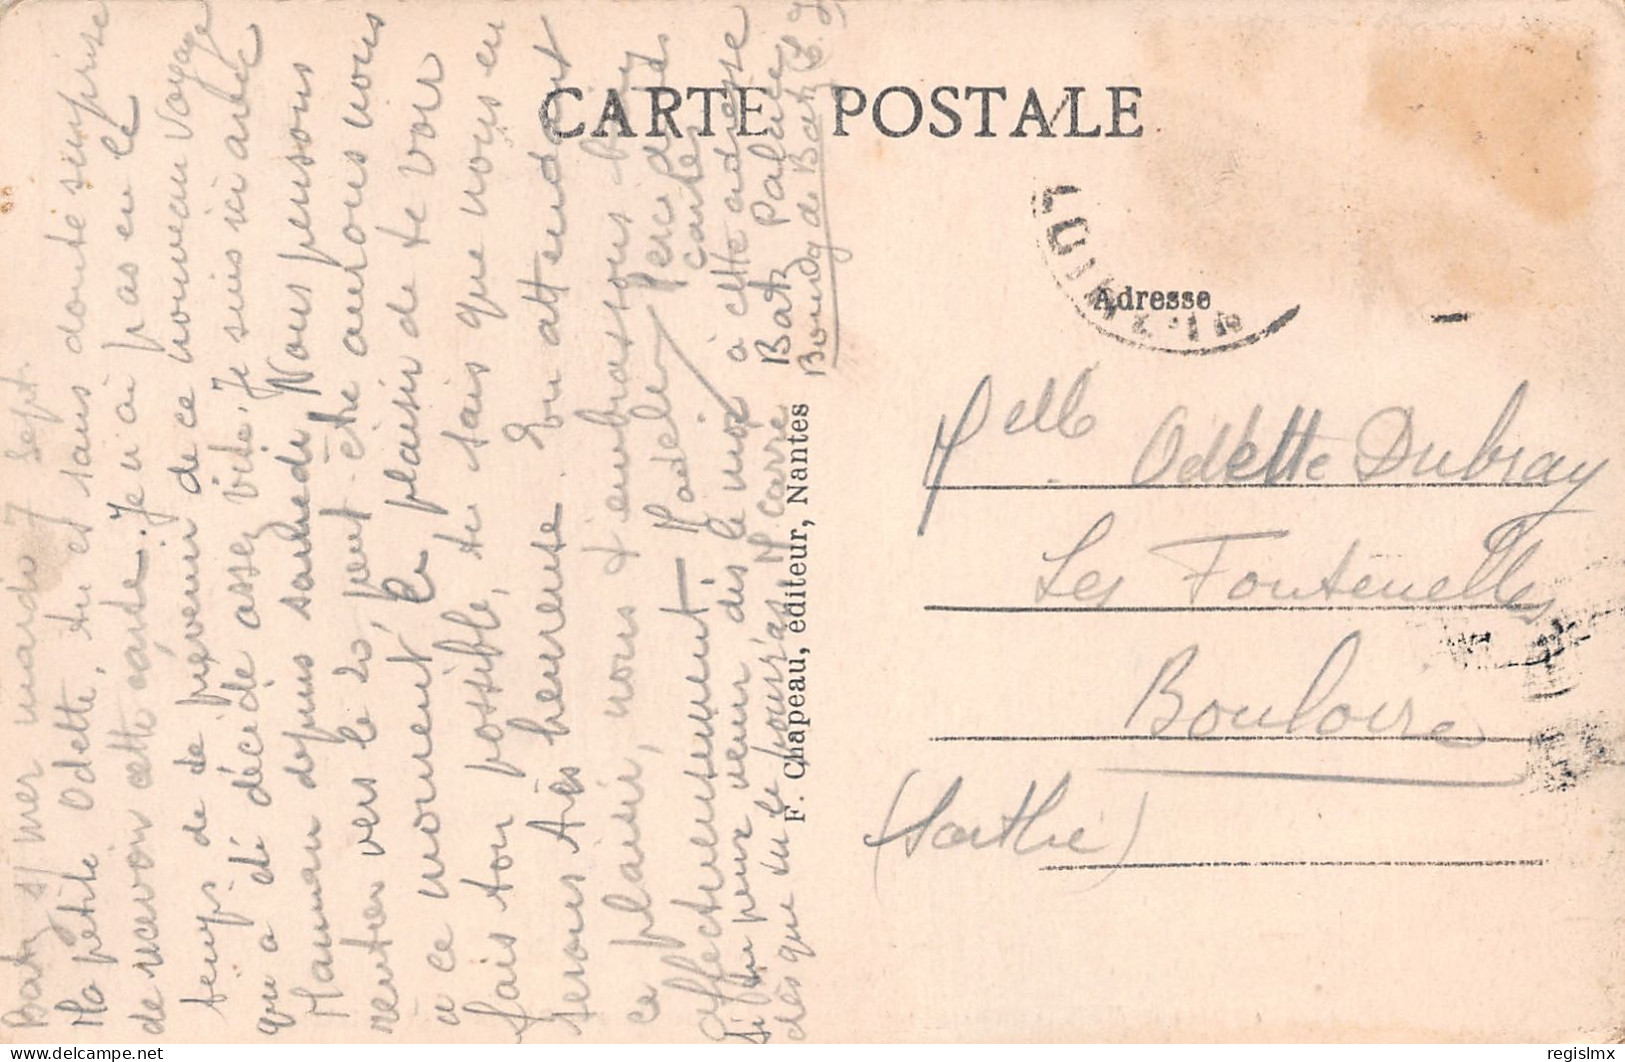 CARTE POSTALE
Adresse
Batz s/ mer mardi 7 Sept.
Ma petite Odette, tu es sans doute surprise
de recevoir cette carte. Je n'ai pas eu le
temps de te prévenir de ce nouveau voyage
qui a été décidé assez vite. Je suis ici avec
Maman depuis samedi. Nous pensons
rentrer vers le 20, peut être aurons nous
à ce moment, le plaisir de te voir
fais ton possible, tu sais que nous en
serons très heureuse. En attendant
ce plaisir, nous t'embrassons bien
affectueusement Madeleine
Si tu peux venir dès le
dès que tu le pourras
à cette adresse
Batz Palace
Bourg de Batz (L. I)
F. Chapeau, éditeur, Nantes
Melle Odette Dubray
Les Fontenelles
Bouloire
(Sarthe)
regislmx